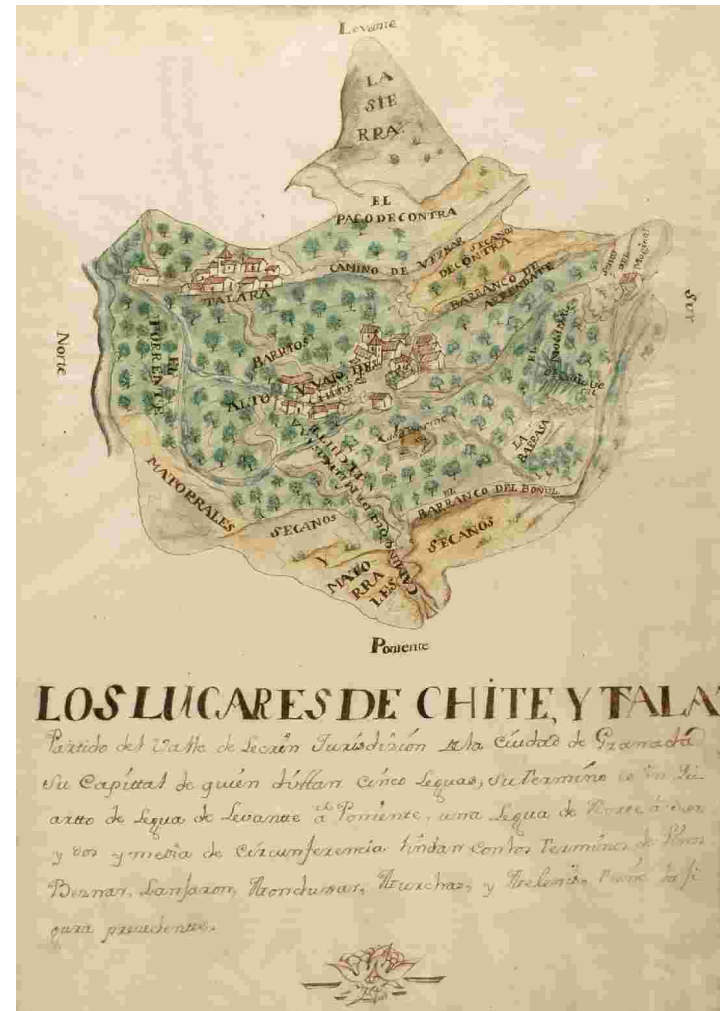 Levante
LA
SIE
RRA.
EL
PAGO DE CONTRA
CAMINO DE VEZNAR
SECANOS
DE CONTRA
BARRANCO DE
TALARA
EL
TORRENTE
BARRIOS
ALTO Y VAJO DE
CHITE
EL
LA
BARRASA
Norte
Sur
MATORRALES
SECANOS
Y
MATO
RRA
LES
EL
BARRANCO DEL BOÑUL
SECANOS
Poniente
LOS LUGARES DE CHITE, Y TALA
Partido del Valle de Lecrin Jurisdicion de la Ciudad de Granada
su Capittal de quien disttan cinco leguas, su termino es un Qu
artto de Legua de Levantte á Poniente, una legua de Norte á Sur
y dos y media de circunferencia lindan con los Terminos de
Beznar, Lanjaron, Mondujar, Murchas, y Melexis. tiene la fi
gura precedente.